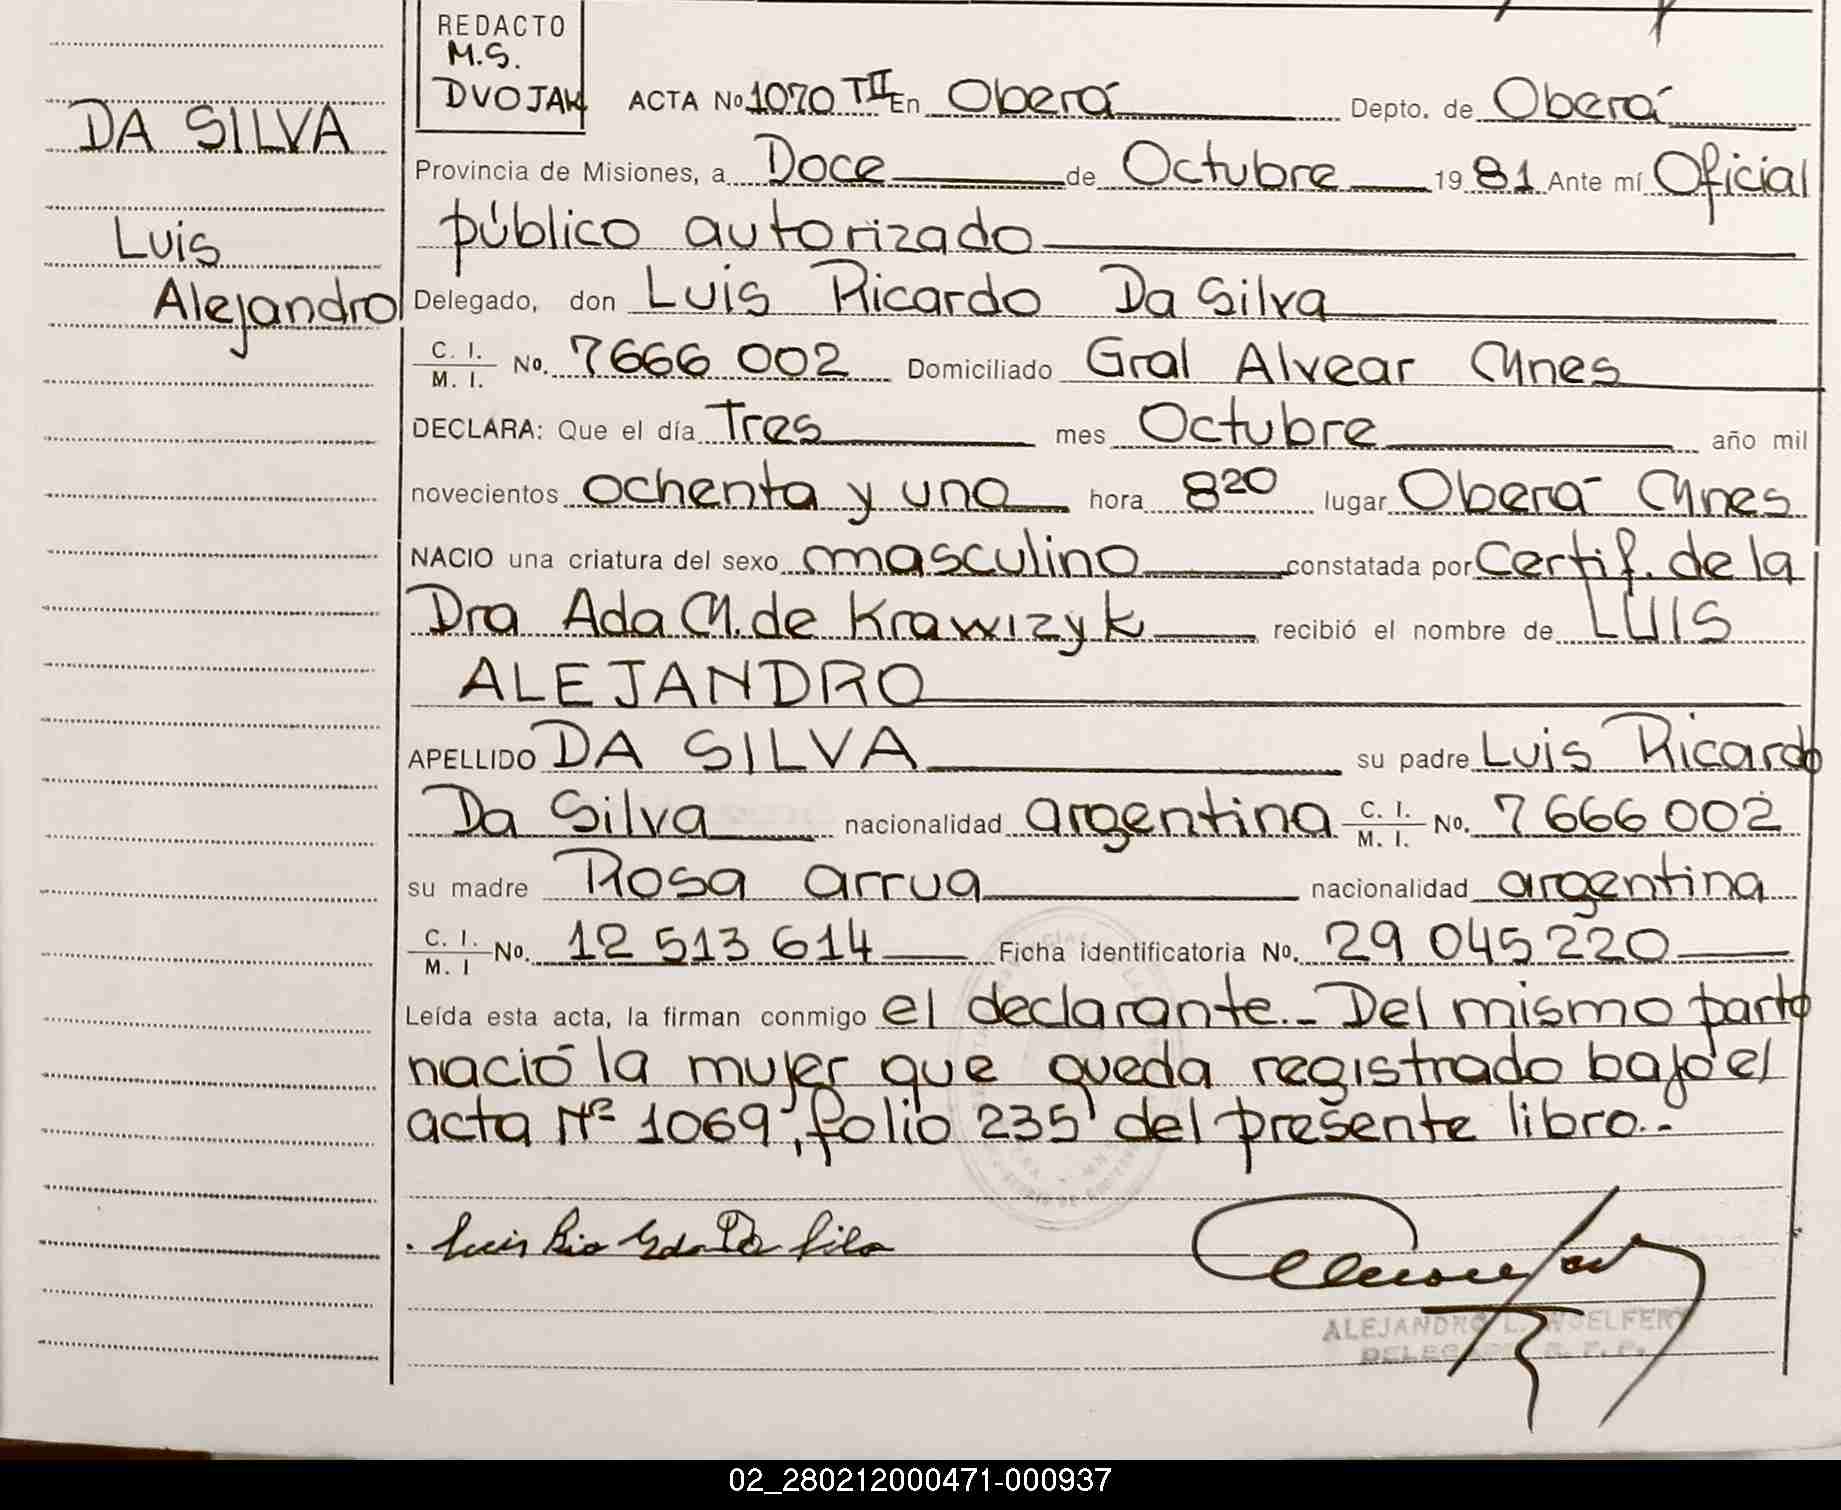 REDACTO
M.S.
DVOJAK
ACTA No 1070 TII En Oberá Depto. de Oberá
DA SILVA
Luis
Alejandro
Provincia de Misiones, a Doce de Octubre 19 81 Ante mí Oficial
público autorizado
Delegado, don Luis Ricardo Da Silva
C. I. / M. I. No. 7666 002 Domiciliado Gral Alvear Mnes
DECLARA: Que el día Tres mes Octubre año mil
novecientos ochenta y uno hora 8 20 lugar Oberá Mnes
NACIO una criatura del sexo masculino constatada por Certif. de la
Dra Ada M. de Krawizyk recibió el nombre de LUIS
ALEJANDRO
APELLIDO DA SILVA su padre Luis Ricardo
Da Silva nacionalidad argentina C. I. / M. I. No. 7 666 002
su madre Rosa arrua nacionalidad argentina
C. I. / M. I No. 12 513 614 Ficha identificatoria No. 29 045 220
Leída esta acta, la firman conmigo el declarante.- Del mismo parto
nació la mujer que queda registrado bajo el
acta Nº 1069, folio 235 del presente libro.-
ALEJANDRO L. WOELFERT
DELEGADO R. P. P.
02_280212000471-000937